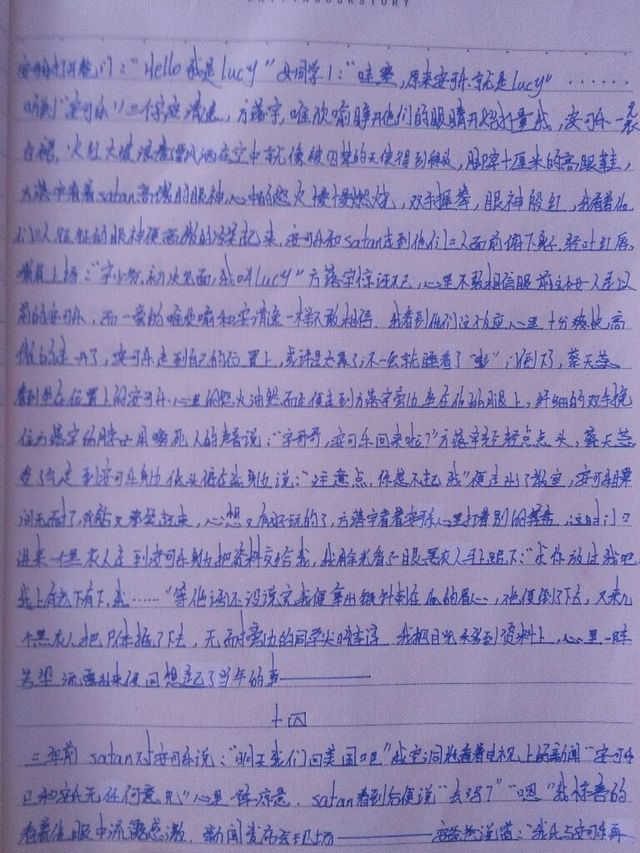 "Hello 我是lucy" 女同学1："哇塞，原来安可乐就是lucy" ……
听到"安可乐"三个字安清逸，方落宇，唯欣喻睁开他们的眼睛开始打量我，安可乐一
火红大波浪卷飘洒在空中就像被囚禁的天使得到释放，脚踩十厘米的高跟鞋，
方落宇看着satan高傲的眼神心中的怒火慢慢燃烧，双手握拳，眼神殷红，我看着他
们三人怔怔的眼神便高傲的笑起来，安可乐和satan走到他们三人面前停下身子，轻吐红唇，
嘴角上扬："宇少爷，初次见面，我叫lucy" 方落宇惊讶不已，心里不敢相信眼前这女人是以
前的安可乐，而一旁的唯欣喻和安清逸一样不敢相信，我看到他们这个反应心里十分愉快，高
傲的走开了，安可乐走到自己的位置上，或许是太累了，不一会就睡着了"嘭"门倒了，蔡天
看到坐在位置上的安可乐心里的怒火油然而生便走到方落宇旁边坐在他的腿上，纤细的双手挽
住方落宇的脖子用嗲死人的声音说："宇哥哥，安可乐回来啦？"方落宇轻轻点点头，蔡天
受了气走到安可乐身边低头俯在我身边说："注意点，你惹不起我"便走出了教室，安可乐瞬
间无而了，我却又邪笑起来，心想又有好玩的了，方落宇看着安可乐心里打着别的算盘，这时门口
进来一黑衣人走到安可乐身边把资料交给我，我抬头看了一眼黑衣人马上跪下："求你放过我吧
我上有老下有下，我……"等他话还没说完我便拿出银针刺在他的眉心，他便倒了下去，又来几
个黑衣人把尸体抬了下去，无而旁边的同学尖叫连连 我把目光移到资料上，心里一阵
失望 流露出来便回想起了当年的事————
十四
三年前 satan对安可乐说："明天我们回美国吧"我空洞的看着电视上的新闻"安可乐
已和安氏无任何意见"心里一阵凉意，satan看到后便说"去吗？" "嗯"我惊喜的
看着他眼中流露感激，新闻发布会现场————安爸爸说道："我氏与安可乐再